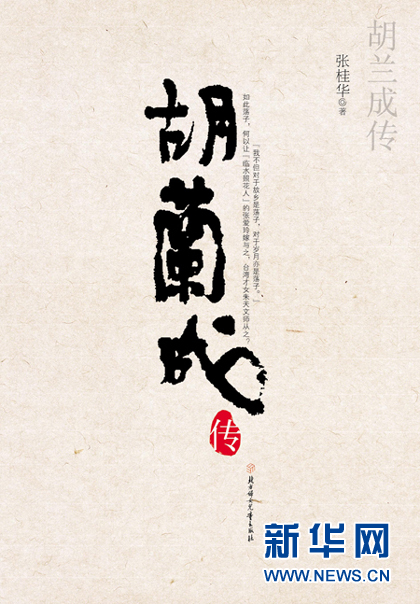 胡兰成传
张桂华◎著
「我不但对于故乡是荡子，对于岁月亦是荡子。」
如此荡子，何以让「临水照花人」的张爱玲嫁与之，台湾才女朱天文师从之？
胡蘭成
传
北方妇女儿童出版社
新华网
WWW.NEWS.CN